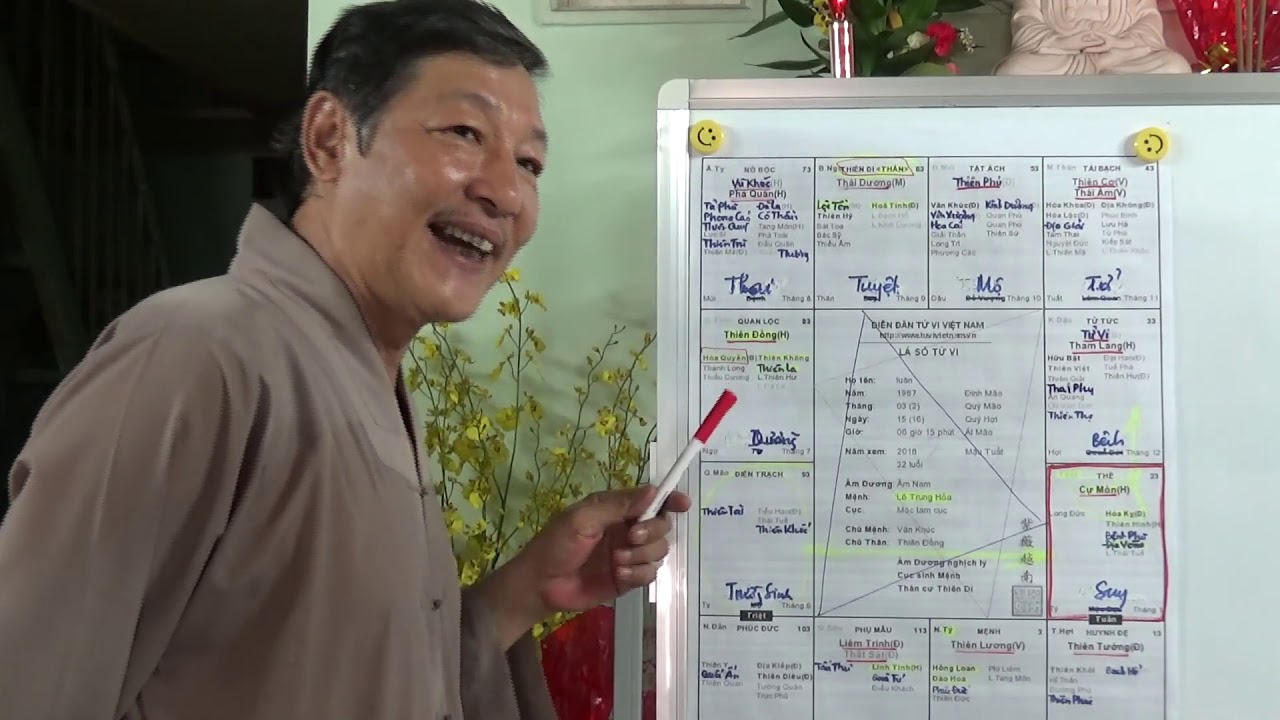 A.Tỵ NÔ BỘC 73
Vũ Khúc(H)
Phá Quân(H)
Tả Phù Đà La(H)
Cô Thần
Thiên Quý Tang Môn(H)
Phá Toái
Thiên Trù Đẩu Quân
Thiên Mã(D)
Thai
Mùi Tháng 8
THIÊN DI <THÂN> 63
Thái Dương(M)
Lộc Tồn Hoả Tinh(D)
Thiên Hỷ
Sát Toa
Bác Sỹ
Thiếu Âm
Tuyệt
Thân Tháng 9
TẬT ÁCH 53
Thiên Phủ
Văn Khúc(D) Kình Dương
Hoa Cái Quan Phủ
Giải Thần Thiên Sứ
Long Trì
Phượng Các
Mộ
Dậu Đế Vượng Tháng 10
M.Thân TÀI BẠCH 43
Thiên Cơ(V)
Thái Âm(V)
Hóa Khoa(D) Địa Không(D)
Hóa Lộc(D) Phục Binh
Địa Giải Lưu Hà
Tam Thai Tử Phù
Nguyệt Đức Kiếp Sát
L.Thiên Mã
Tử
Tuất Lâm Quan Tháng 11
QUAN LỘC 83
Thiên Đồng(H)
Hóa Quyền(B) Thiên Không
Thanh Long Thiên La
Thiếu Dương L.Thiên Hư
Dưỡng
Ngọ Tháng 7
DIỄN ĐÀN TỬ VI VIỆT NAM
http://www.tuvivietnam.vn
LÁ SỐ TỬ VI
Họ tên: luân
Năm: 1987 Đinh Mão
Tháng: 03 (2) Quý Mão
Ngày: 15 (16) Quý Hợi
Giờ: 06 giờ 15 phút Ất Mão
Năm xem: 2018 Mậu Tuất
32 tuổi
Âm Dương: Âm Nam
Mệnh: Lô Trung Hỏa
Cục: Mộc tam cục
Chủ Mệnh: Văn Khúc
Chủ Thân: Thiên Đồng
Âm Dương nghịch lý
Cục sinh Mệnh
Thân cư Thiên Di
紫
薇
越
南
K.Dậu TỬ TỨC 33
Tử Vi
Tham Lang(H)
Hữu Bật Đại Hao(D)
Thiên Việt Tuế Phá
Thiên Giải Thiên Hư(D)
Thai Phụ
Ân Quang
Thiên Thọ
Bệnh
Hợi Tháng 12
Q.Mão ĐIỀN TRẠCH 93
Thiên Tài Tiểu Hao(D)
Thái Tuế
Thiên Khốc
Tràng Sinh
Tỵ Tháng 6
Triệt
THÊ 23
Cự Môn(H)
Long Đức Hóa Kỵ(D)
Thiên Hình(H)
Bệnh Phù
Địa Võng
L.Thái Tuế
Suy
Tý Tháng 1
Tuần
N.Dần PHÚC ĐỨC 103
Địa Kiếp(D)
Quốc Ấn Thiên Diêu(D)
Thiên Quan Tướng Quân
Trực Phù
PHỤ MẪU 113
Liêm Trinh(D)
Thất Sát(D)
Tấu Thư Linh Tinh(H)
Quả Tú
Điếu Khách
N.Tý MỆNH 3
Thiên Lương(V)
Hồng Loan Phi Liêm
Đào Hoa L.Tang Môn
Phúc Đức
Thiên Đức
T.Hợi HUYNH ĐỆ 13
Thiên Tướng(D)
Thiên Khôi Bạch Hổ
Hỉ Thần
Đường Phù
Thiên Phúc